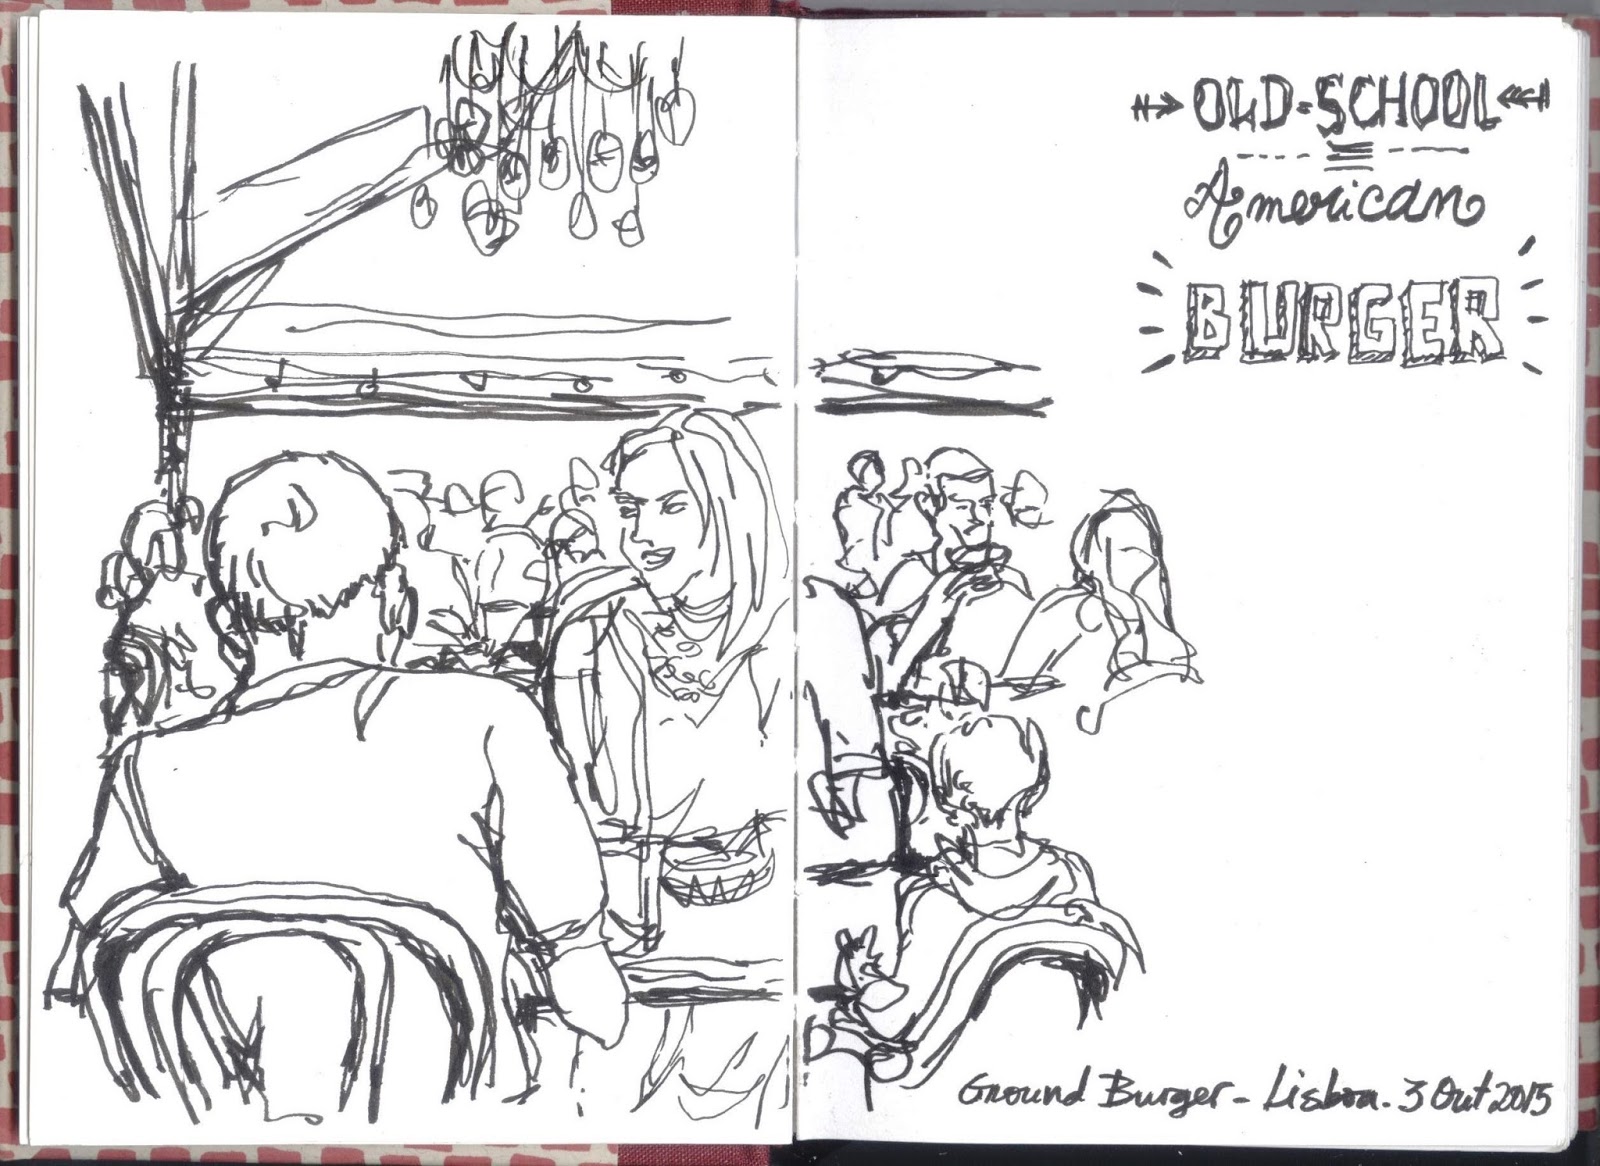 OLD-SCHOOL
American
BURGER
Ground Burger - Lisboa. 3 Out 2015